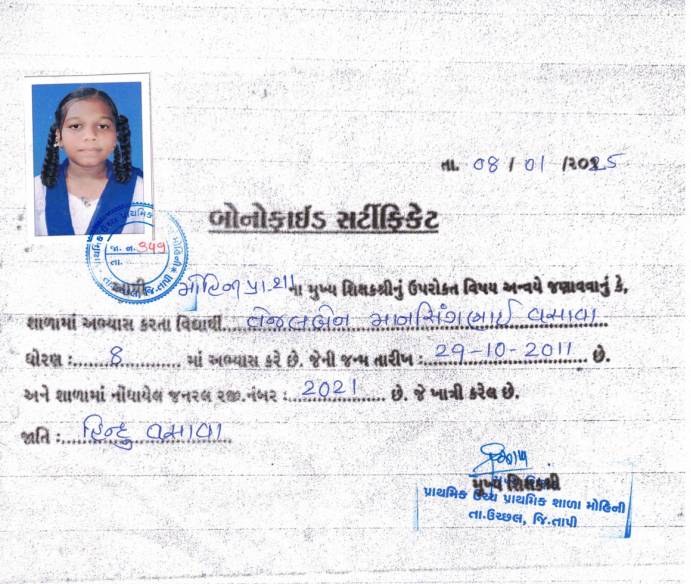 તા. 08 / 01 /2025
બોનોફાઈડ સર્ટીફિકેટ
જા. ન. 349
તા.
આથી મોહિની પ્રા.શા ના મુખ્ય શિક્ષકશ્રીનું ઉપરોકત વિષય અન્વયે જણાવવાનું કે,
શાળામાં અભ્યાસ કરતા વિદ્યાર્થી.... તેજલબેન માનસિંગભાઈ વસાવા
ધોરણ :......... 8 ......... માં અભ્યાસ કરે છે. જેની જન્મ તારીખ :.. 29-10-2011 ..... છે.
અને શાળામાં નોંધાયેલ જનરલ રજી.નંબર :.. 2021 ......... છે. જે ખાત્રી કરેલ છે.
જાતિ :.... હિન્દુ વસાવા
મુખ્ય શિક્ષકશ્રી
પ્રાથમિક ઉચ્ચ પ્રાથમિક શાળા મોહિની
તા.ઉચ્છલ, જિ.તાપી